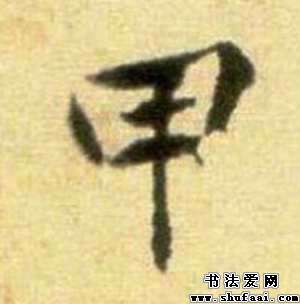 甲
书法爱网
www.shufaai.com